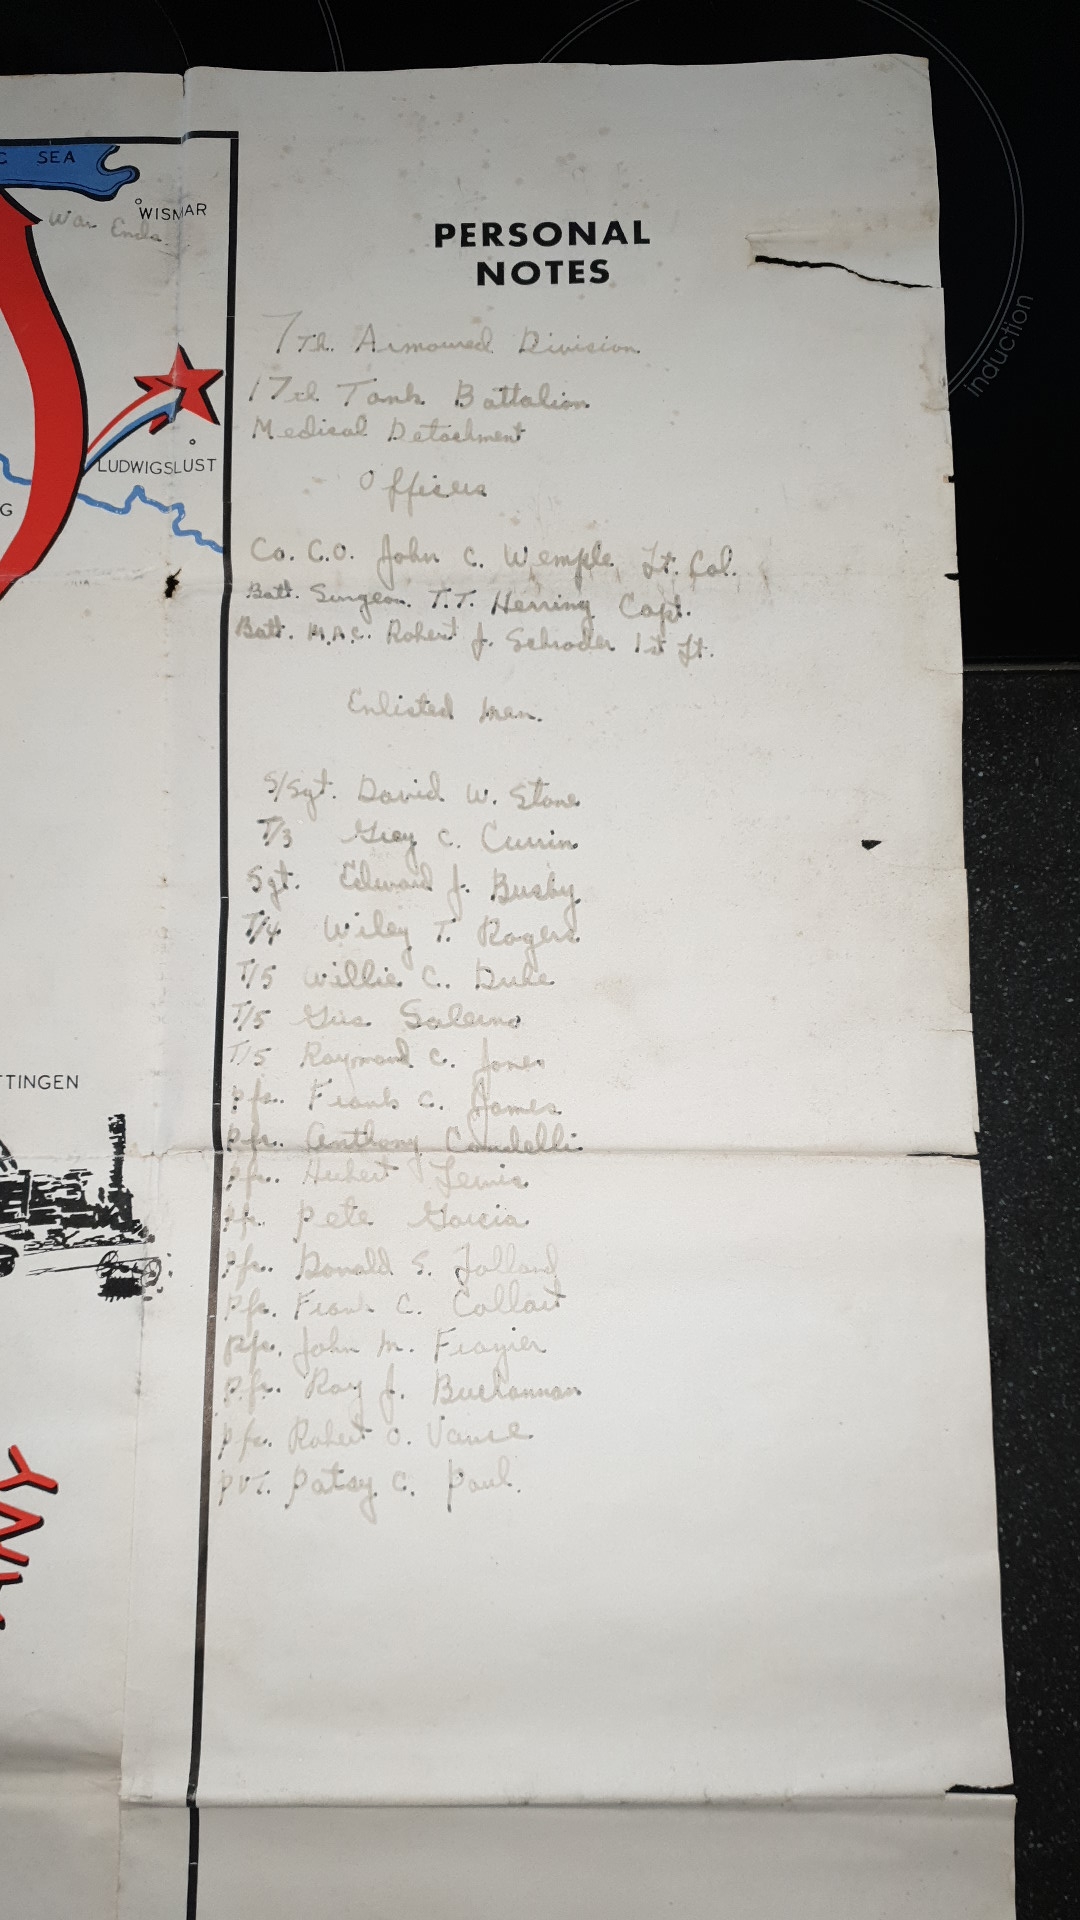 SEA
WISMAR
War Ends.
PERSONAL
NOTES
7th. Armoured Division
17th Tank Battalion
Medical Detachment
LUDWIGSLUST
G
Officers
Co. C.O. John C. Wemple, Lt. Col.
Batt. Surgeon. T.T. Herring Capt.
Batt. M.A.C. Robert J. Schroder 1st Lt.
Enlisted men.
S/Sgt. David W. Stone
T/3 Guy C. Currin
Sgt. Edward J. Busby
T/4 Wiley T. Rogers
T/5 Willie C. Duke
T/5 Gus Salerno
T/5 Raymond C. Jones
TTINGEN
Pfc. Frank C. James
Pfc. Anthony
Pfc. Hubert Lewis
Pfc. Pete Garcia
Pfc. Donald S.
Pfc. Frank C.
Pfc. John M. Frazier
Pfc. Ray J. Buchannan
Pfc. Robert O. Vance
Pvt. Patsy C. Paul.
induction